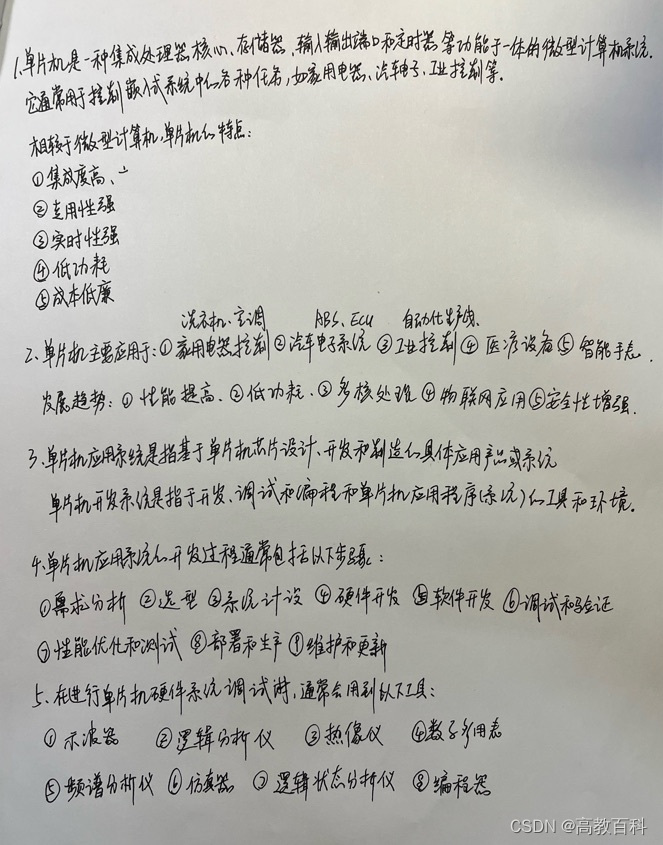 1.单片机是一种集成处理器核心、存储器、输入输出端口和定时器等功能于一体的微型计算机系统.
它通常用于控制嵌入式系统中的各种任务,如家用电器、汽车电子、工业控制等.
相较于微型计算机,单片机的特点:
①集成度高、
②专用性强
③实时性强
④低功耗
⑤成本低廉
洗衣机、空调 ABS、ECU 自动化生产线、
2.单片机主要应用于:①家用电器控制②汽车电子系统③工业控制④医疗设备⑤智能手表.
发展趋势:①性能提高、②低功耗、③多核处理④物联网应用⑤安全性增强.
3.单片机应用系统是指基于单片机芯片设计、开发和制造的具体应用产品或系统
单片机开发系统是指于开发、调试和编程和单片机应用程序(系统)的工具和环境.
4.单片机应用系统的开发过程通常包括以下步骤:
①需求分析 ②选型 ③系统计设 ④硬件开发 ⑤软件开发 ⑥调试和验证
⑦性能优化和测试 ⑧部署和生产 ⑨维护和更新
5.在进行单片机硬件系统调试时,通常会用到以下工具:
①示波器 ②逻辑分析仪 ③热像仪 ④数字多用表
⑤频谱分析仪 ⑥仿真器 ⑦逻辑状态分析仪 ⑧编程器
CSDN @高教百科